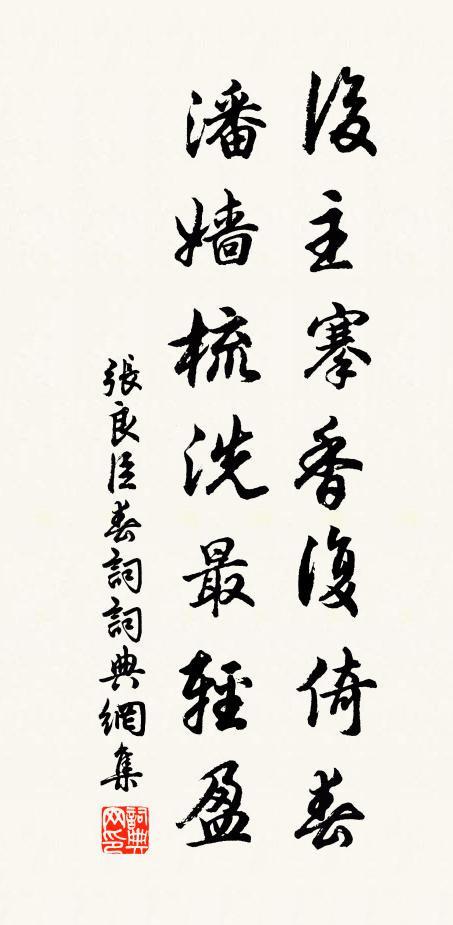 後主搴香復倚春
潘嬙梳洗最輕盈
張良臣春詞詞典網集
詞典網印